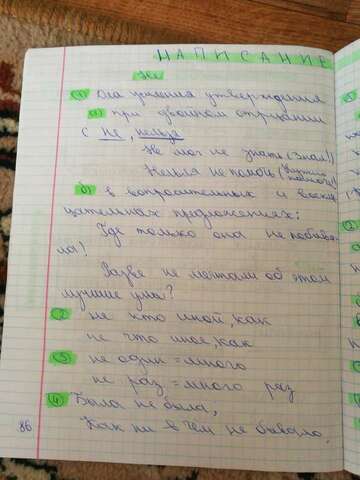 НАПИСАНИЕ
Не
① Для усиления утверждения
а) при двойном отрицании
с не, нельзя
Не мог не знать (знал!)
Нельзя не помочь (нужно помочь!)
б) в вопросительных и воскли
цательных предложениях:
Где только она не побыва
ла!
Разве не мечтали об этом
лучшие умы?
② не кто иной, как
не что иное, как
③ не один = много
не раз = много раз
④ Была не была,
Как ни в чём не бывало.
86